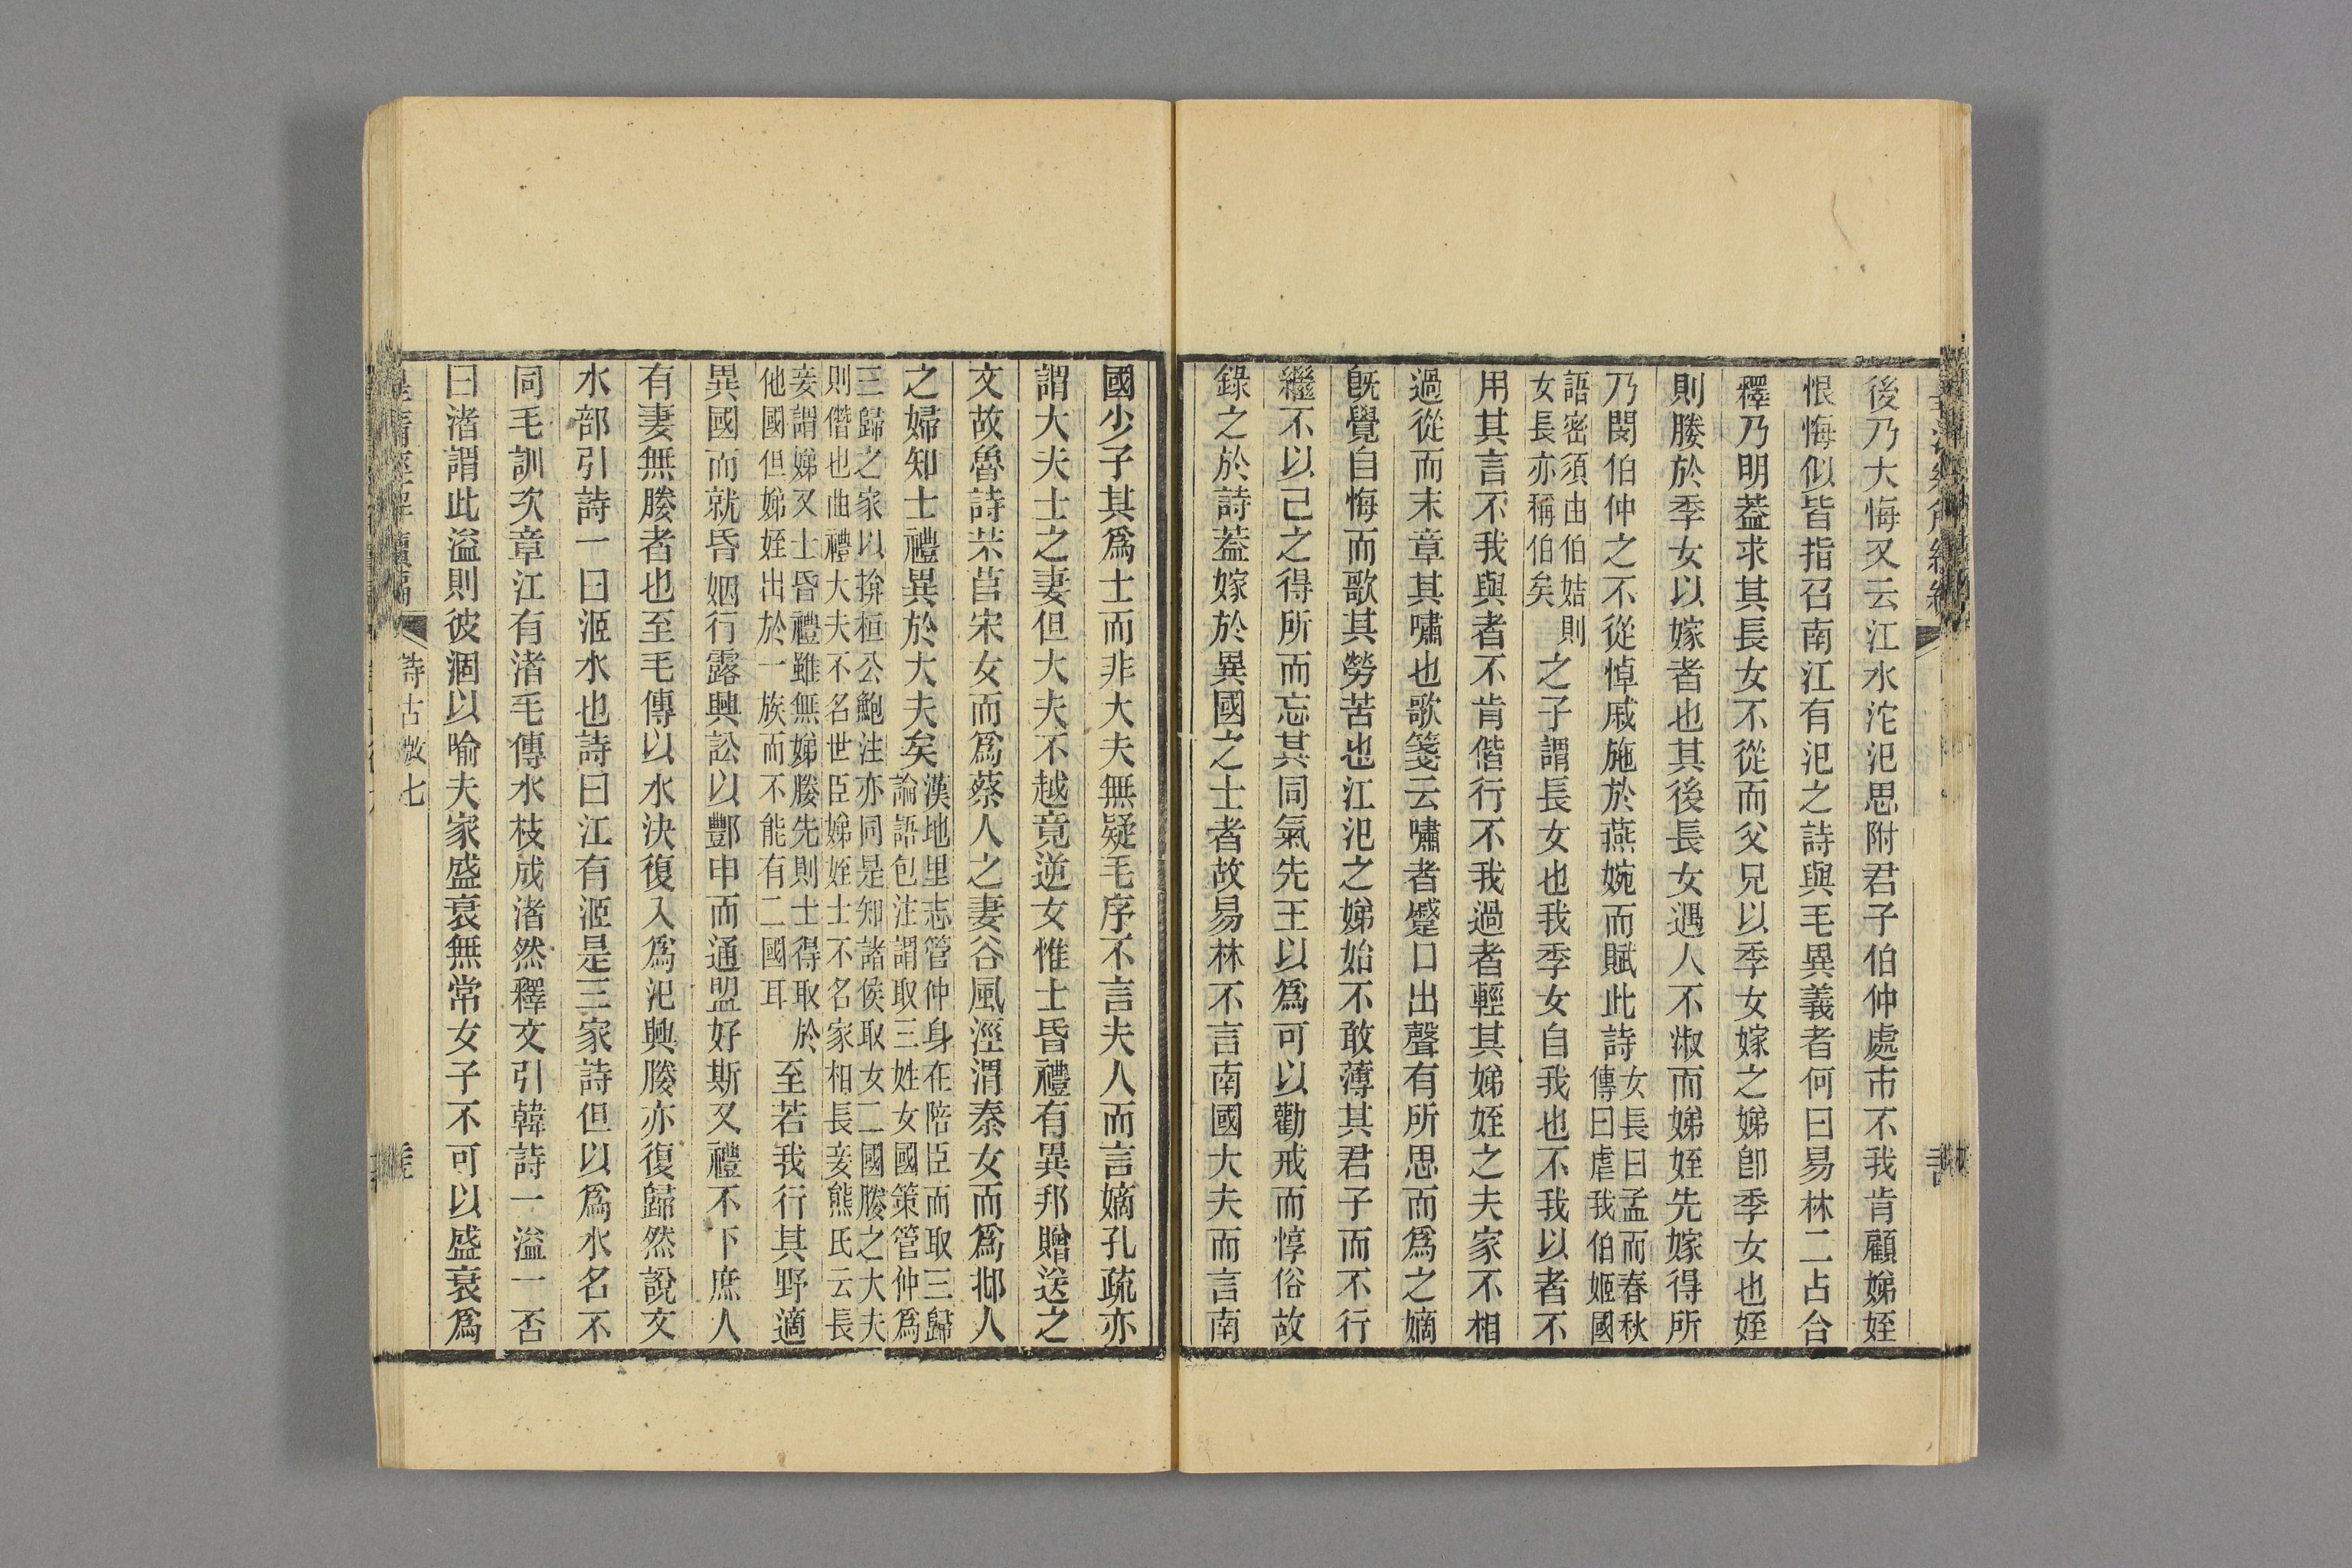 後乃大悔又云江水沱汜思附君子伯仲處市不我肯顧娣姪
恨悔似皆指召南江有汜之詩與毛異義者何曰易林二占合
釋乃明葢求其長女不從而父兄以季女嫁之娣卽季女也姪
則媵於季女以嫁者也其後長女遇人不淑而娣姪先嫁得所
乃閔伯仲之不從悼戚施於燕婉而賦此詩女長曰孟而春秋傳曰虐我伯姬國
語密須由伯姞則女長亦稱伯矣之子謂長女也我季女自我也不我以者不
用其言不我與者不肯偕行不我過者輕其娣姪之夫家不相
過從而末章其嘯也歌箋云嘯者蹙口出聲有所思而爲之嫡
旣覺自悔而歌其勞苦也江汜之娣始不敢薄其君子而不行
繼不以己之得所而忘其同氣先王以爲可以勸戒而惇俗故
錄之於詩葢嫁於異國之士者故易林不言南國大夫而言南
國少子其爲士而非大夫無疑毛序不言夫人而言嫡孔疏亦
謂大夫士之妻但大夫不越竟逆女惟士昏禮有異邦贈送之
文故魯詩芣苢宋女而爲蔡人之妻谷風涇渭秦女而爲邶人
之婦知士禮異於大夫矣漢地里志管仲身在陪臣而取三歸論語包注謂取三姓女國策管仲爲
三歸之家以揜桓公鮑注亦同是知諸侯取女二國媵之大夫則僭也曲禮大夫不名世臣娣姪士不名家相長妾熊氏云長
妾謂娣又士昏禮雖無娣媵先則士得取於他國但娣姪出於一族而不能有二國耳至若我行其野適
異國而就昏姻行露興訟以酆申而通盟好斯又禮不下庶人
有妻無媵者也至毛傳以水決復入爲汜興媵亦復歸然說文
水部引詩一曰洍水也詩曰江有洍是三家詩但以爲水名不
同毛訓次章江有渚毛傳水枝成渚然釋文引韓詩一溢一否
曰渚謂此溢則彼涸以喻夫家盛衰無常女子不可以盛衰爲
詩古微七